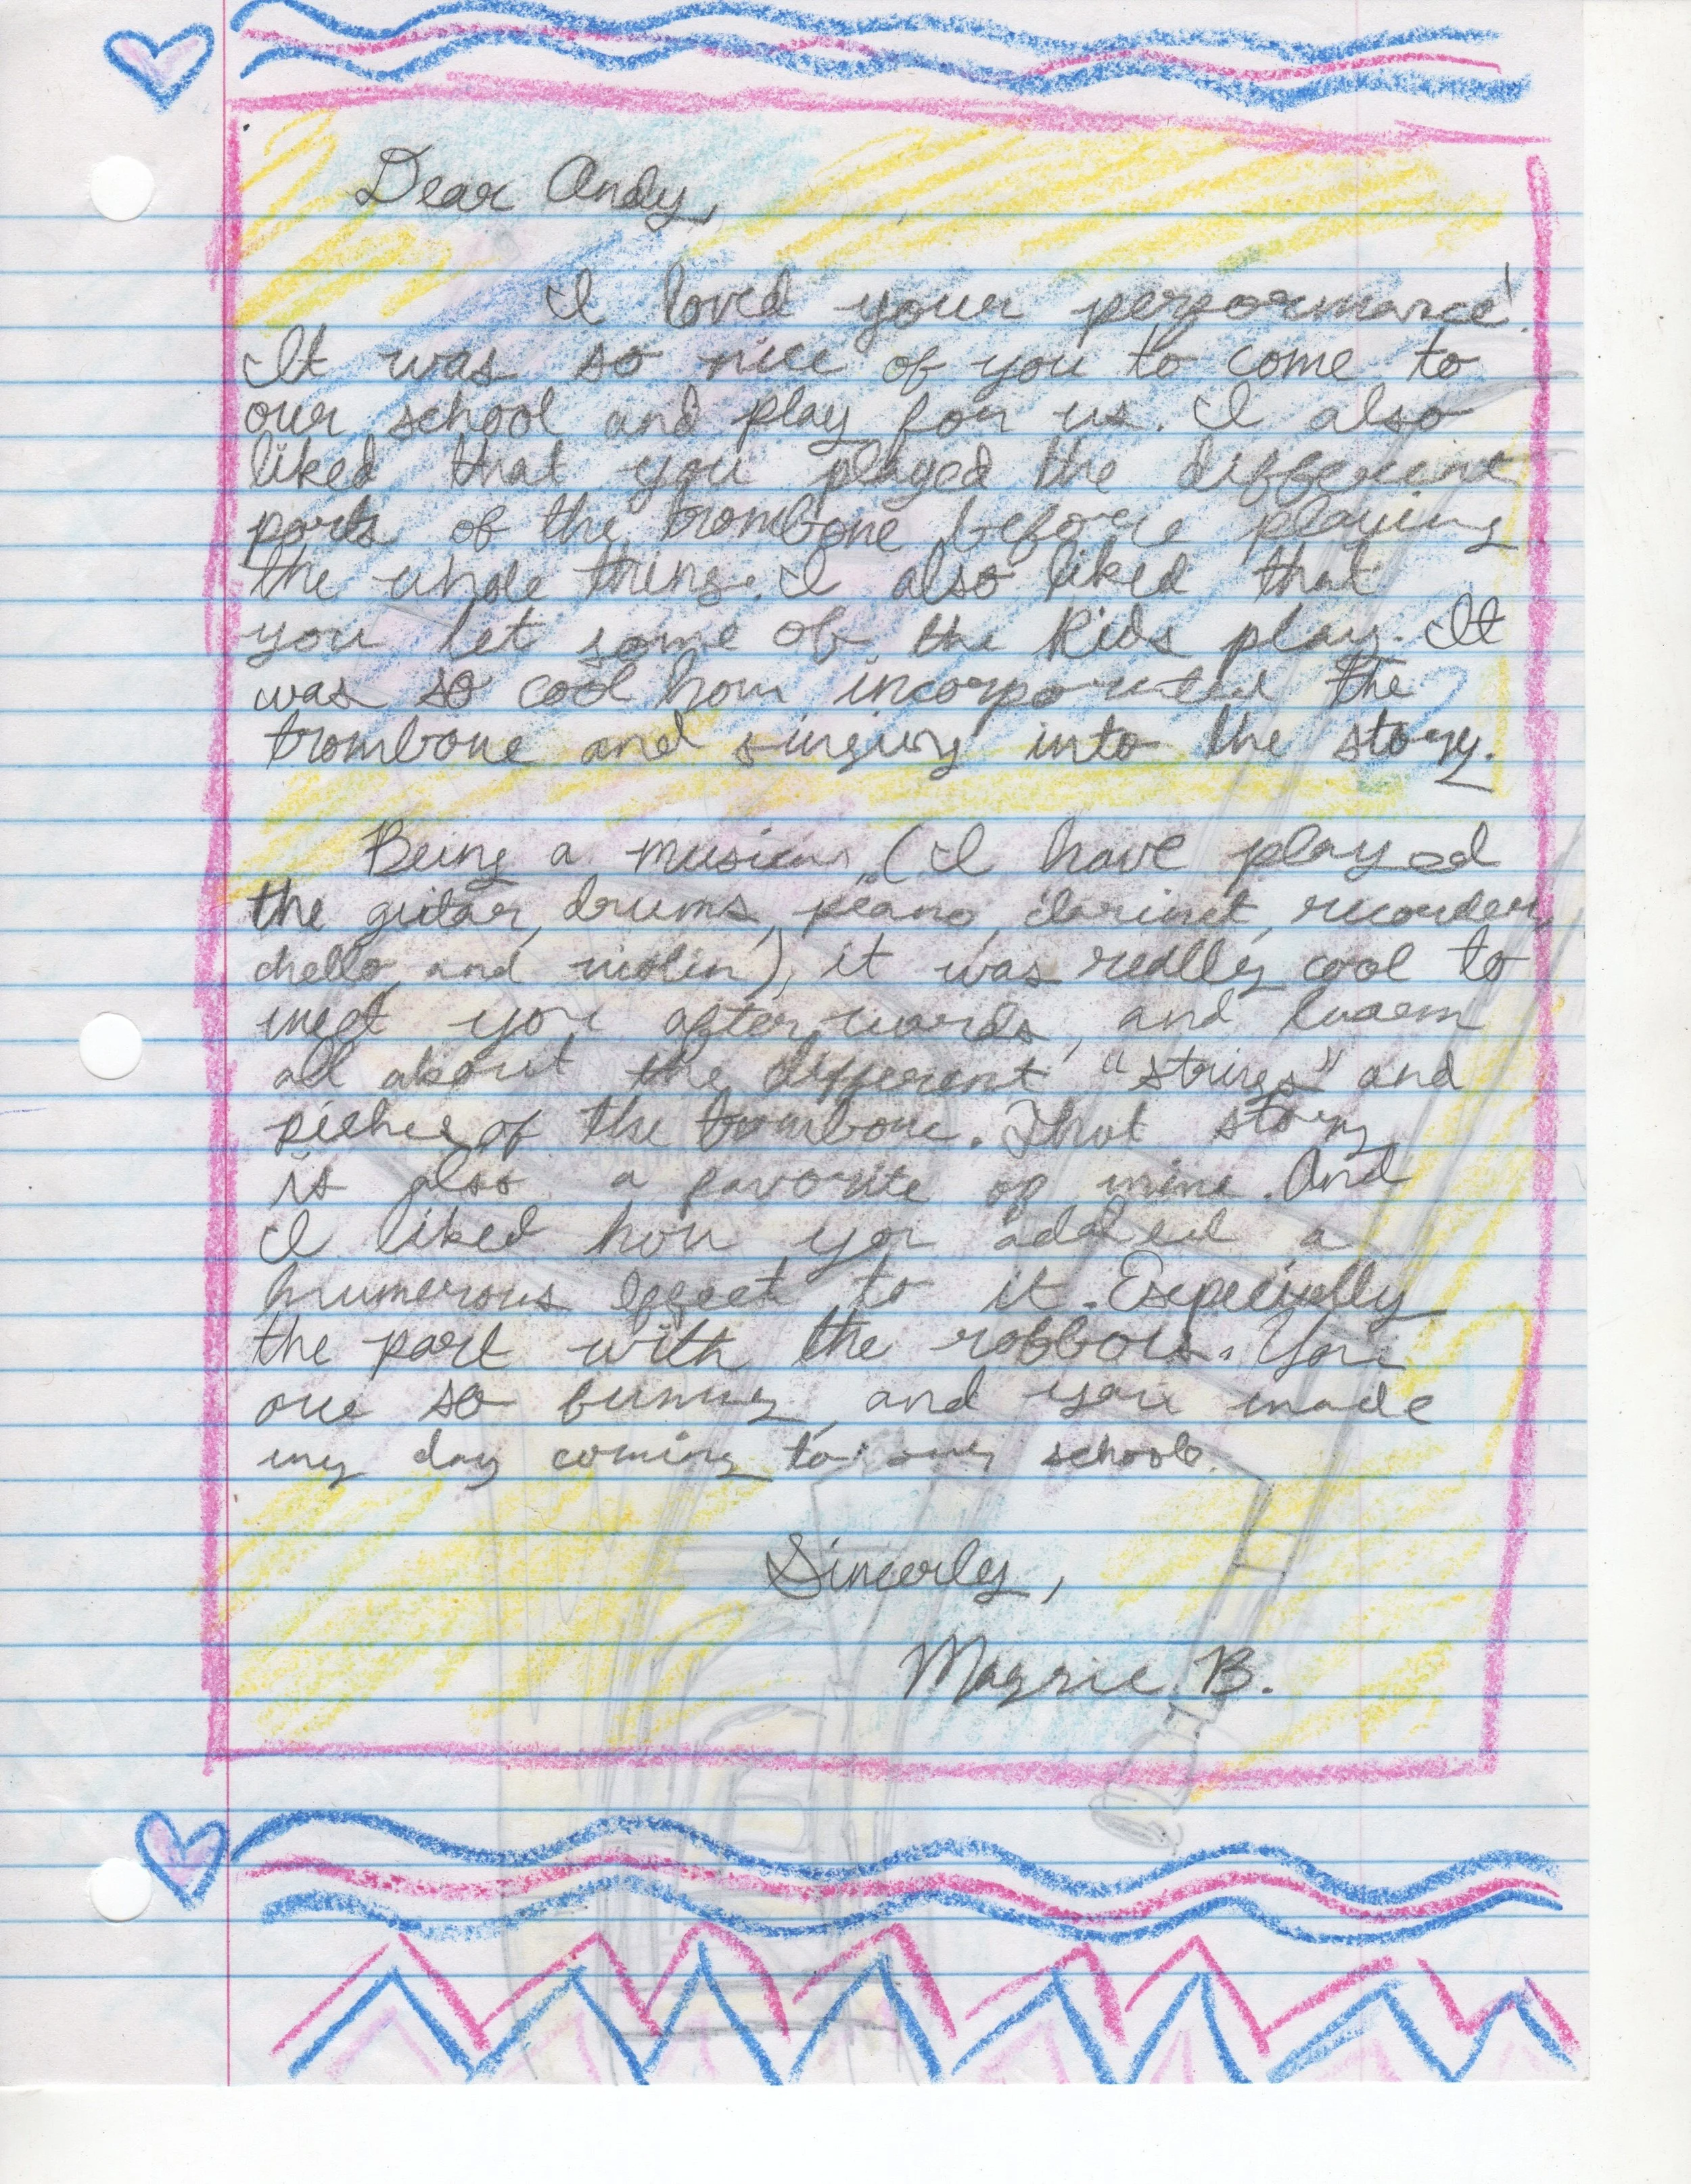 Dear Andy,
I loved your performance!
It was so nice of you to come to
our school and play for us. I also
liked that you played the different
parts of the trombone before playing
the whole thing. I also liked that
you let some of the kids play. It
was so cool how incorporated the
trombone and singing into the story.
Being a musician, (I have played
the guitar, drums, piano, clarinet, recorder,
chello, and violin), it was really cool to
meet you afterwards, and learn
all about the different "strings" and
of the trombone. That story
is also a favorite of mine. And
I liked how you added a
humerous effect to it. Especially
the part with the robbors. You
are so funny, and you made
my day coming to my school.
Sincerly,
Maggie B.